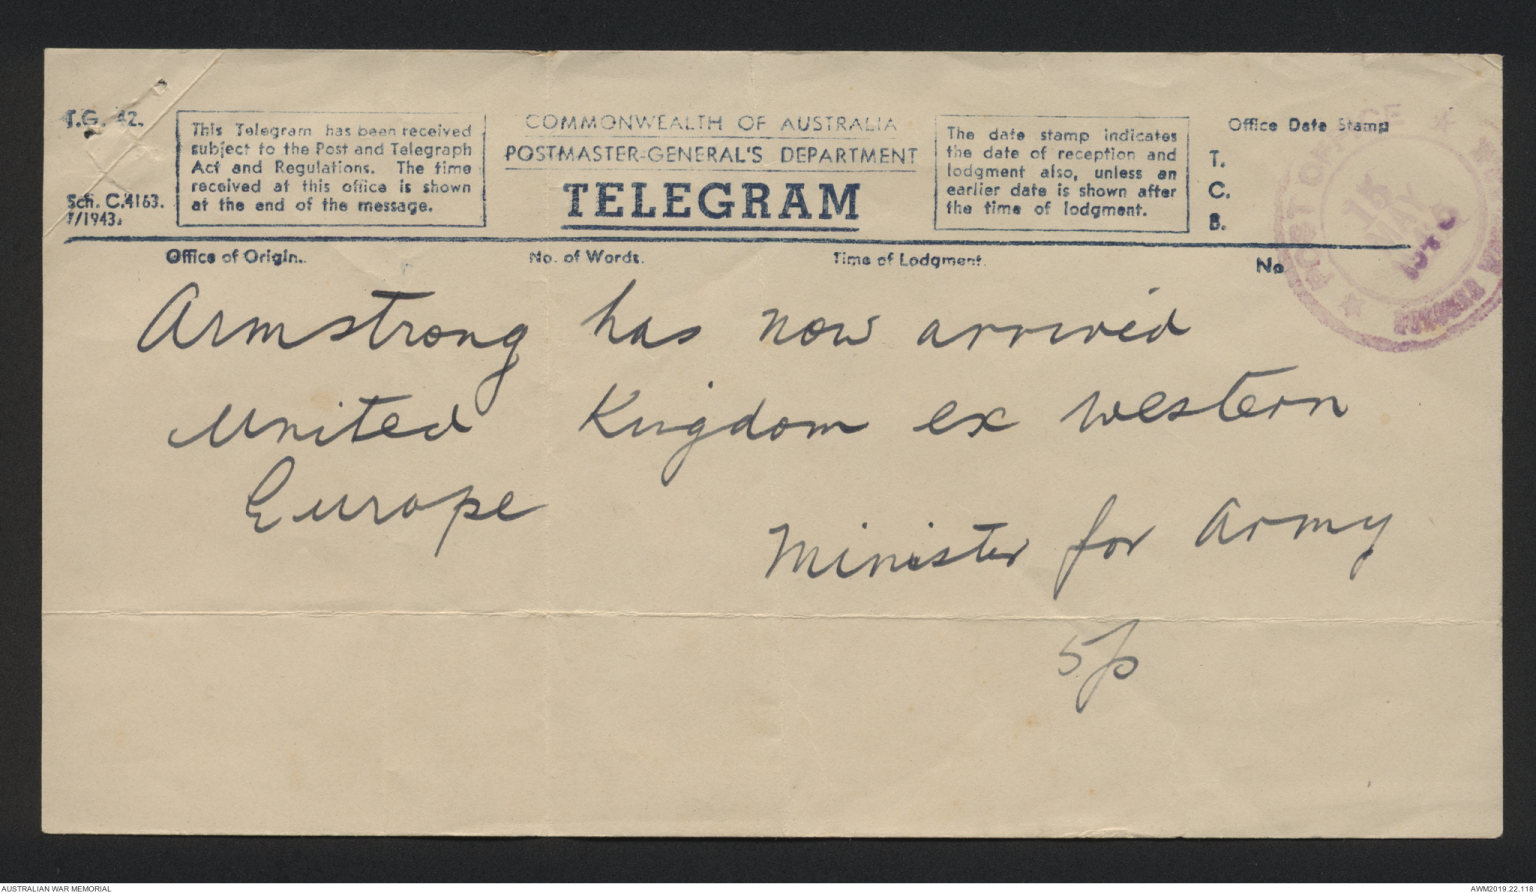 T.G. 42.
Sch. C.4163.
7/1943.
This Telegram has been received
subject to the Post and Telegraph
Act and Regulations. The time
received at this office is shown
at the end of the message.
COMMONWEALTH OF AUSTRALIA
POSTMASTER-GENERAL'S DEPARTMENT
TELEGRAM
The date stamp indicates
the date of reception and
lodgment also, unless an
earlier date is shown after
the time of lodgment.
Office Date Stamp
T.
C.
B.
POST OFFICE
15
MAY
Office of Origin.
No. of Words.
Time of Lodgment.
No.
Armstrong has now arrived
United Kingdom ex western
Europe
Minister for Army
5/p
AUSTRALIAN WAR MEMORIAL
AWM2019.22.118